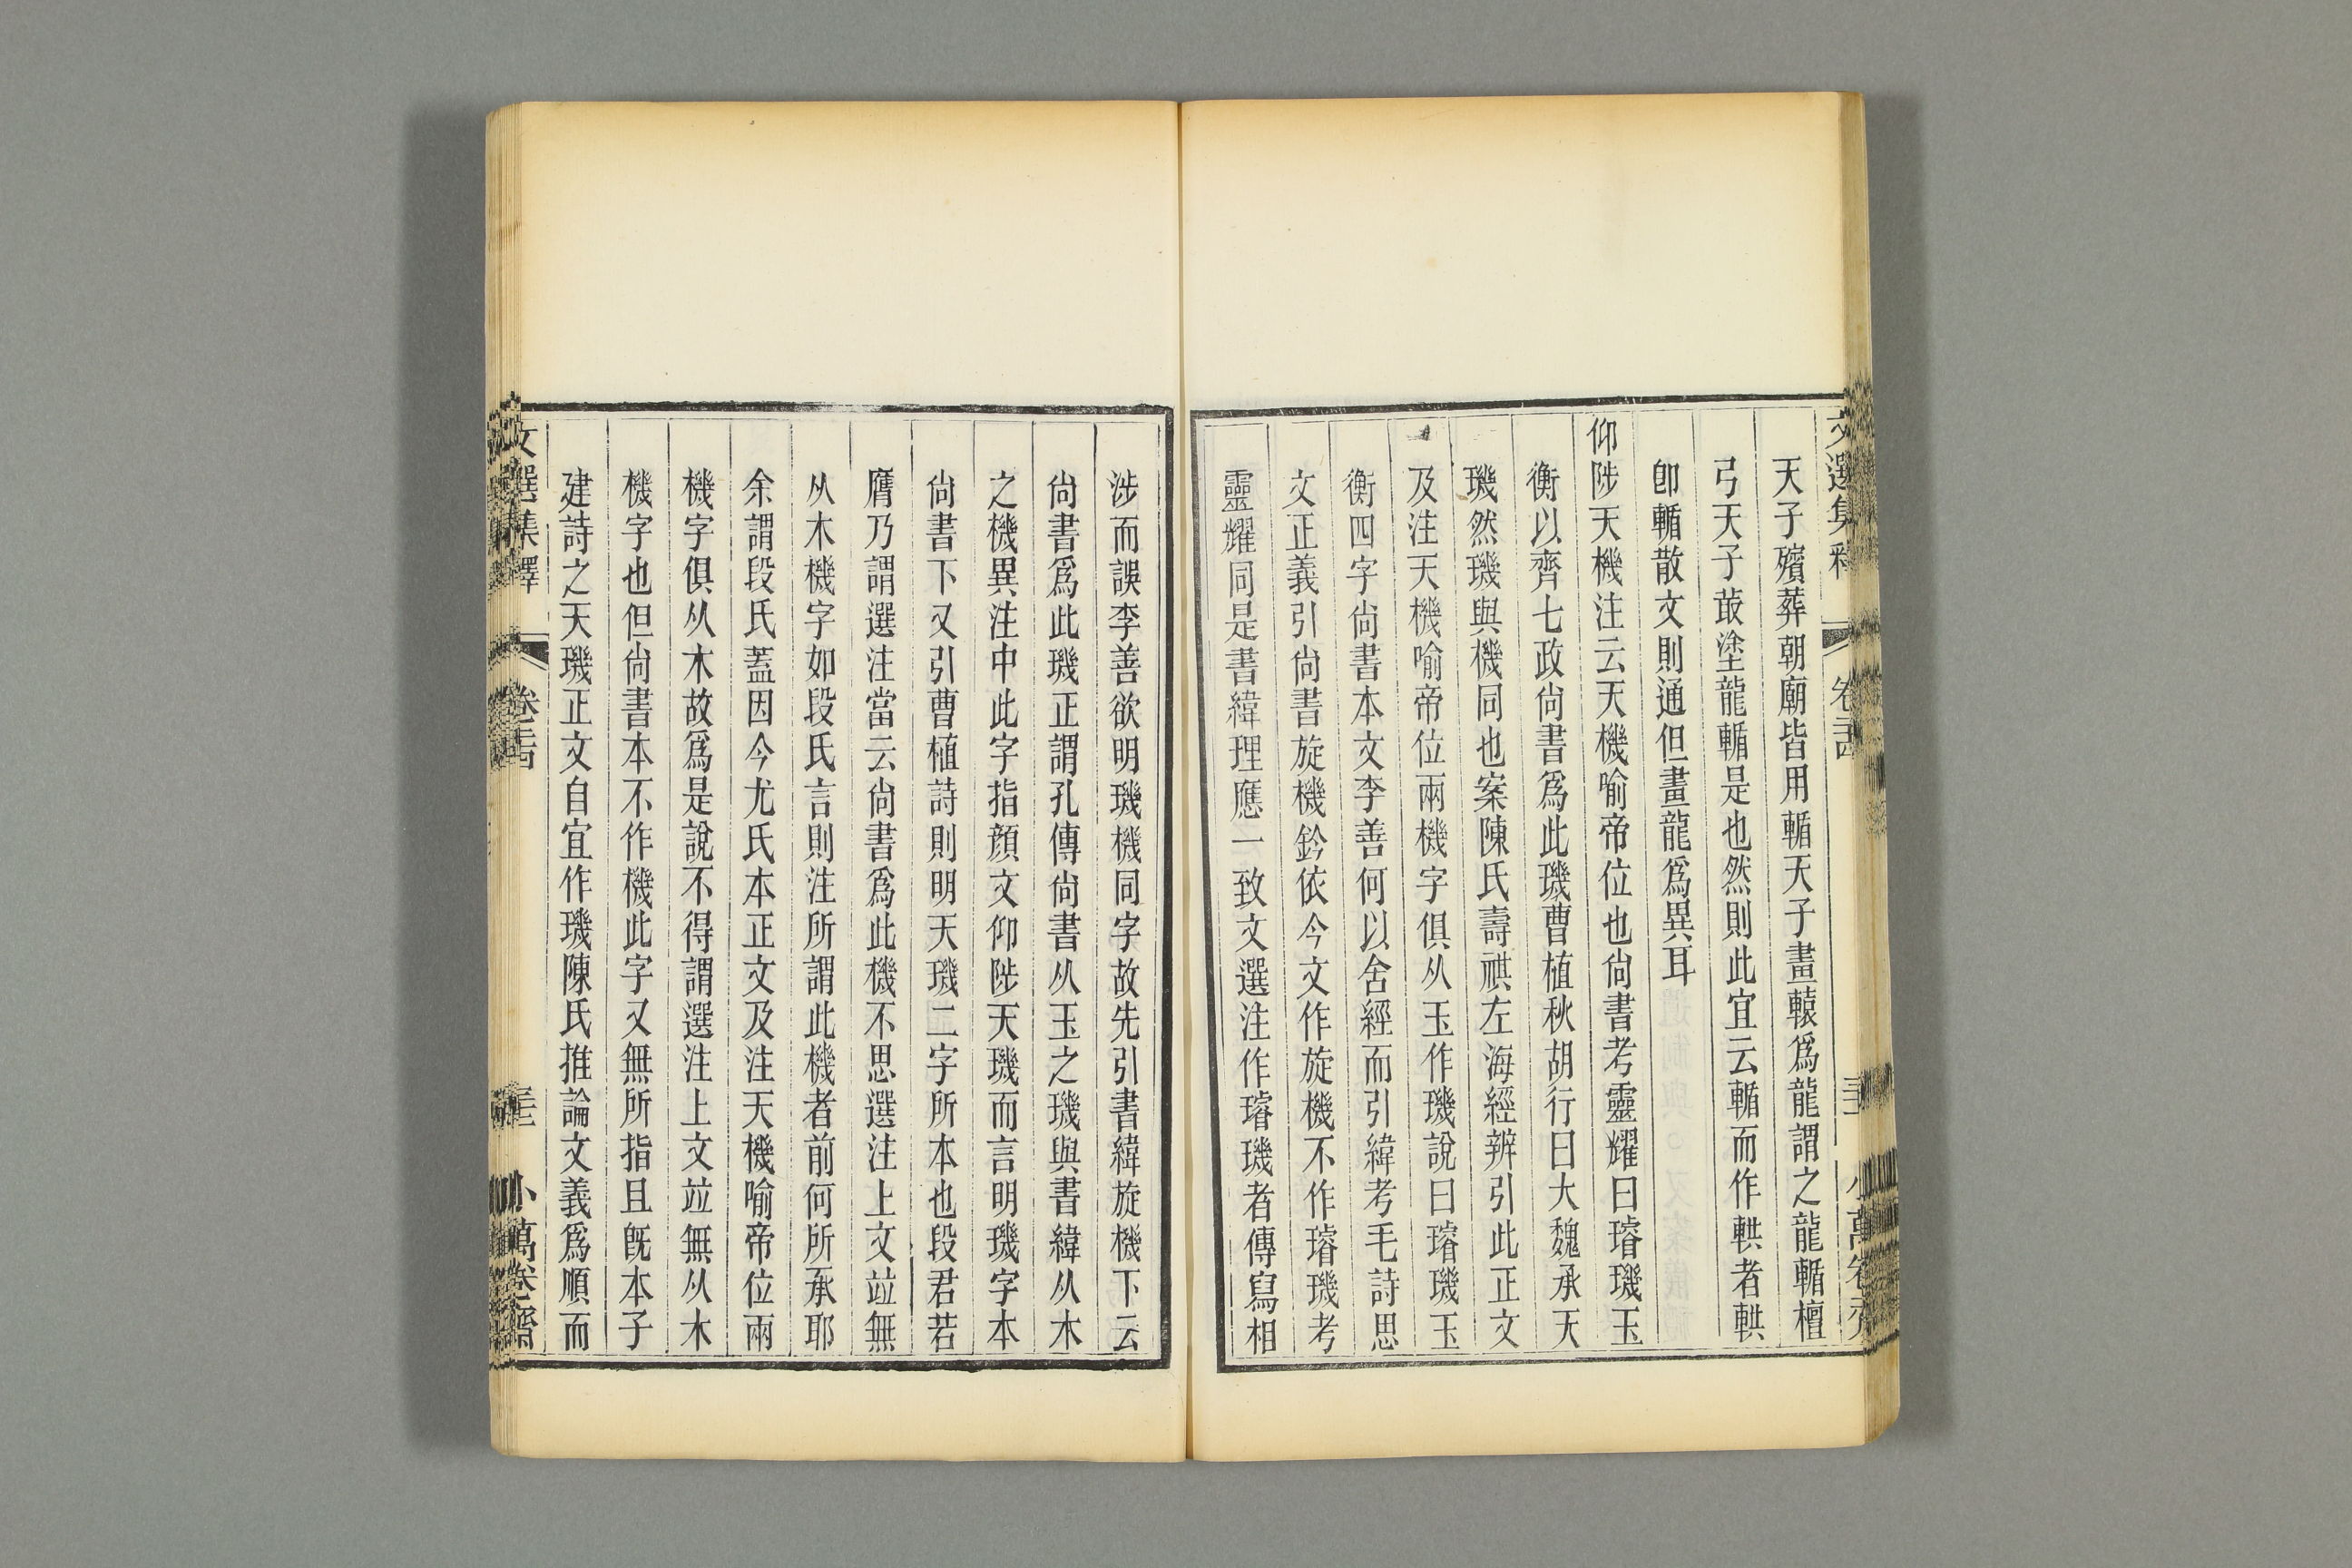 文選集釋 卷二十四 小萬卷齋
天子殯葬朝廟皆用輴天子畫轅爲龍謂之龍輴檀
弓天子菆塗龍輴是也然則此宜云輴而作輁者輁
卽輴散文則通但畫龍爲異耳
仰陟天機注云天機喻帝位也尙書考靈耀曰璿璣玉
衡以齊七政尙書爲此璣曹植秋胡行曰大魏承天
璣然璣與機同也案陳氏壽祺左海經辨引此正文
及注天機喻帝位兩機字俱从玉作璣說曰璿璣玉
衡四字尙書本文李善何以舍經而引緯考毛詩思
文正義引尙書旋機鈐依今文作旋機不作璿璣考
靈耀同是書緯理應一致文選注作璿璣者傳寫相
涉而誤李善欲明璣機同字故先引書緯旋機下云
尙書爲此璣正謂孔傳尙書从玉之璣與書緯从木
之機異注中此字指顏文仰陟天璣而言明璣字本
尙書下又引曹植詩則明天璣二字所本也段君若
膺乃謂選注當云尙書爲此機不思選注上文竝無
从木機字如段氏言則注所謂此機者前何所承耶
余謂段氏蓋因今尤氏本正文及注天機喻帝位兩
機字俱从木故爲是說不得謂選注上文竝無从木
機字也但尙書本不作機此字又無所指且旣本子
建詩之天璣正文自宜作璣陳氏推論文義爲順而
文選集釋 卷二十四 小萬卷齋